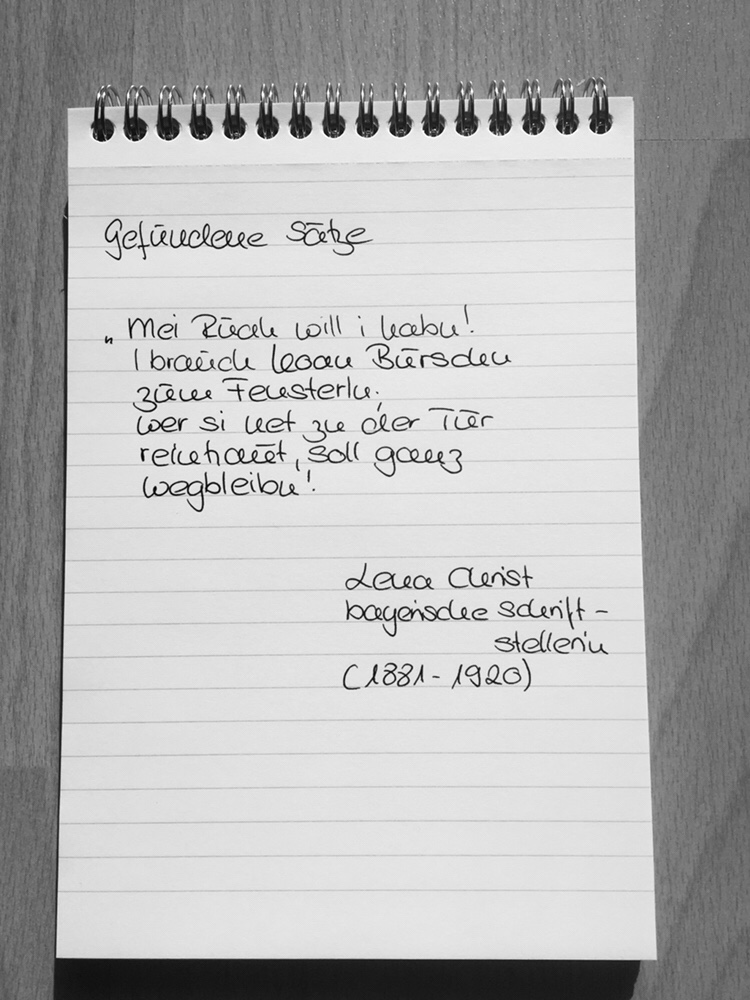 Gefundene Sätze
„Mei Ruah will i habn!
I brauch koan Burschn
zum Fensterln;
wer si net zu der Tür
reinhaut, soll ganz
wegbleibn!
Lena Christ
bayerische Schrift-
stellerin
(1881-1920)